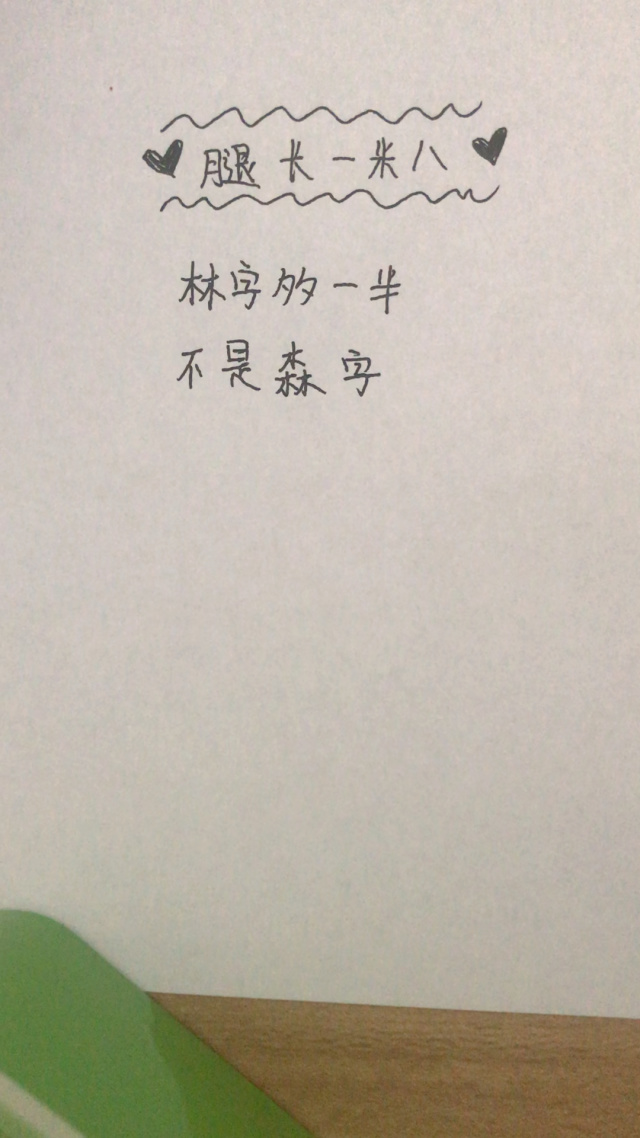 腿长一米八
林字多一半
不是森字